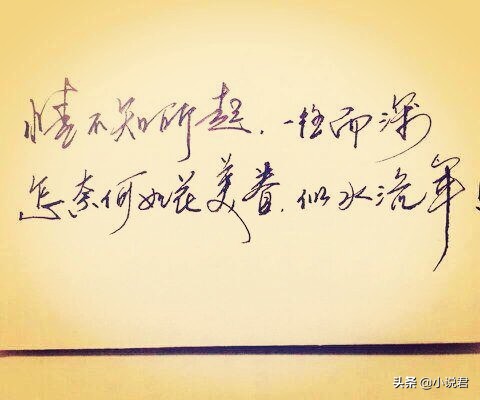 情不知所起，一往而深
怎奈何如花美眷，似水流年
头条 @小说君